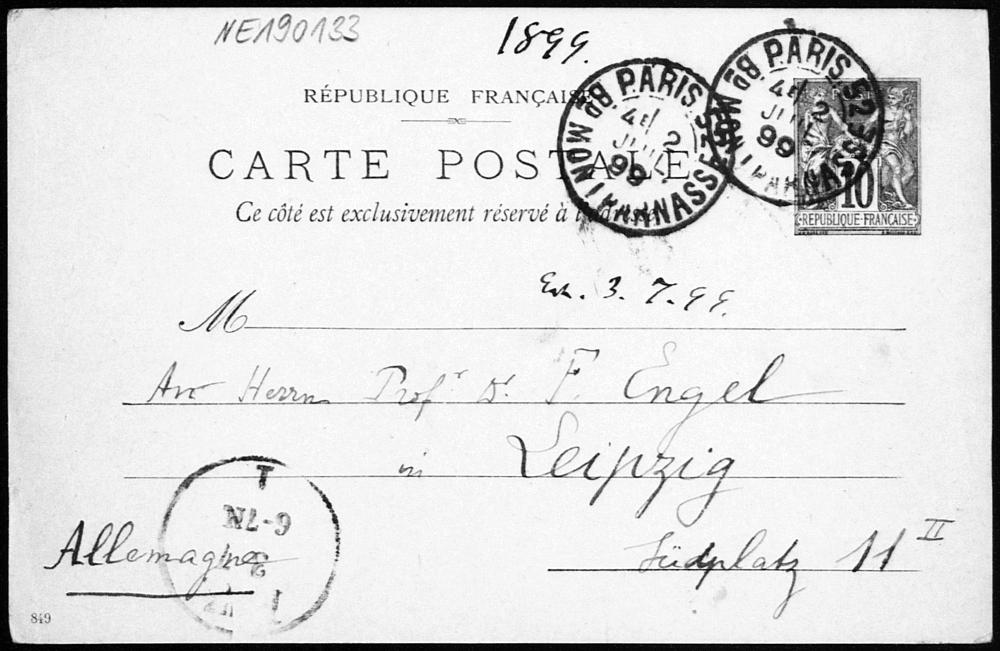 NE190133
1899.
RÉPUBLIQUE FRANÇAISE
CARTE POSTALE
Ce côté est exclusivement réservé à l'adresse
PARIS 52
4E
2
JUIL
99
Bd MONTPARNASSE
PARIS 52
4E
2
99
Bd MONTPARNASSE
10
REPUBLIQUE FRANÇAISE
3. 7. 99.
M
An Herrn Prof. Dr. F. Engel
in Leipzig
Südplatz 11 II
Allemagne
6-7N
849